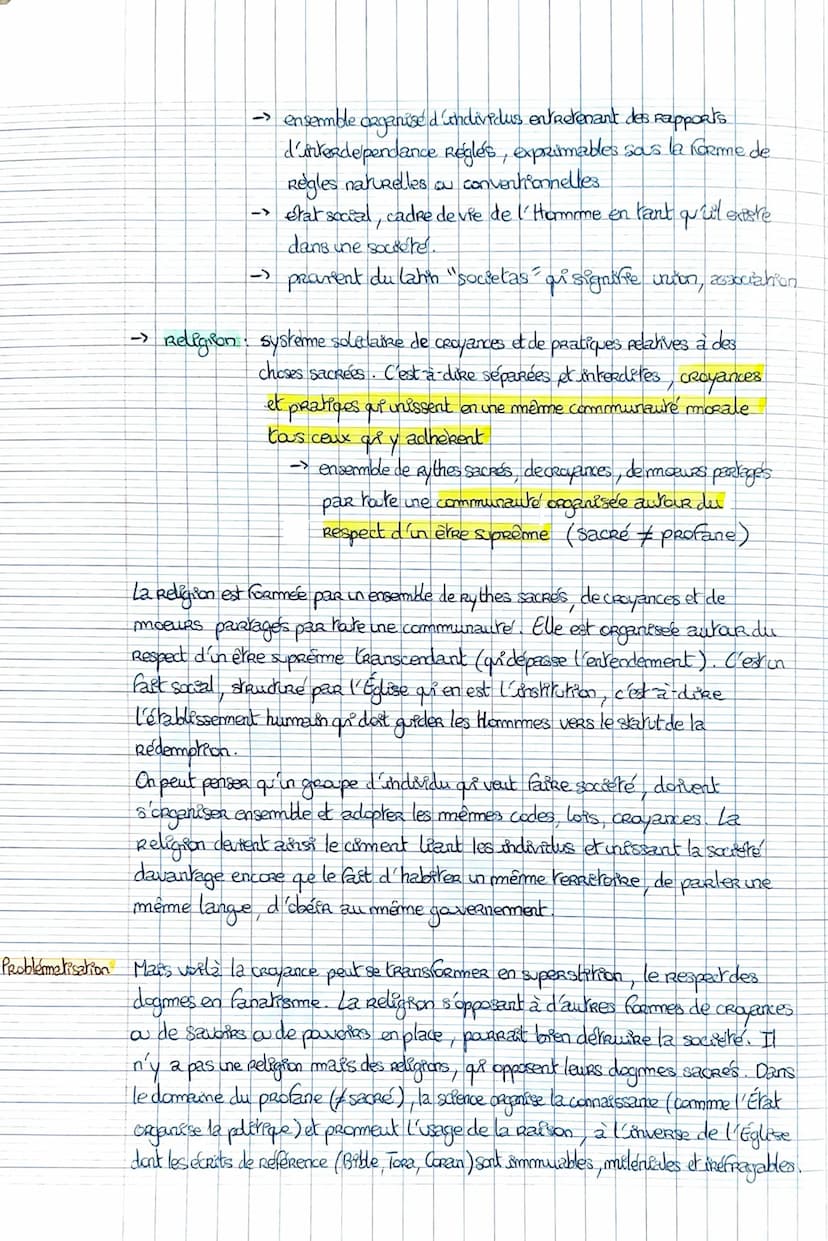 → ensemble organisé d'individus entretenant des rapports
d'interdépendance réglés, exprimables sous la forme de
règles naturelles ou conventionnelles
→ état social, cadre de vie de l'Homme en tant qu'il existe
dans une société.
→ provient du latin "societas" qui signifie union, association
→ Religion : système solidaire de croyances et de pratiques relatives à des
choses sacrées. C'est-à-dire séparées et interdites, croyances
et pratiques qui unissent en une même communauté morale
tous ceux qui y adhèrent
→ ensemble de rythes sacrés, de croyances, de moeurs partagés
par toute une communauté organisée autour du
respect d'un être suprême (sacré ≠ profane)
La religion est formée par un ensemble de rythes sacrés, de croyances et de
moeurs partagés par toute une communauté. Elle est organisée autour du
respect d'un être suprême transcendant (qui dépasse l'entendement). C'est un
fait social, structuré par l'Église qui en est l'institution, c'est-à-dire
l'établissement humain qui doit guider les Hommes vers le statut de la
rédemption.
On peut penser qu'un groupe d'individu qui veut faire société, doivent
s'organiser ensemble et adopter les mêmes codes, lois, croyances. La
religion devient ainsi le ciment liant les individus et unissant la société
davantage encore que le fait d'habiter un même territoire, de parler une
même langue, d'obéir au même gouvernement.
Problématisation Mais voilà la croyance peut se transformer en superstition, le respect des
dogmes en fanatisme. La religion s'opposant à d'autres formes de croyances
ou de savoirs ou de pouvoirs en place, pourrait bien détruire la société. Il
n'y a pas une religion mais des religions, qui opposent leurs dogmes sacrés. Dans
le domaine du profane (≠ sacré), la science organise la connaissance (comme l'État
organise la politique) et promeut l'usage de la raison, à l'inverse de l'Église
dont les écrits de référence (Bible, Tora, Coran) sont immuables, millénales et iréfragables.